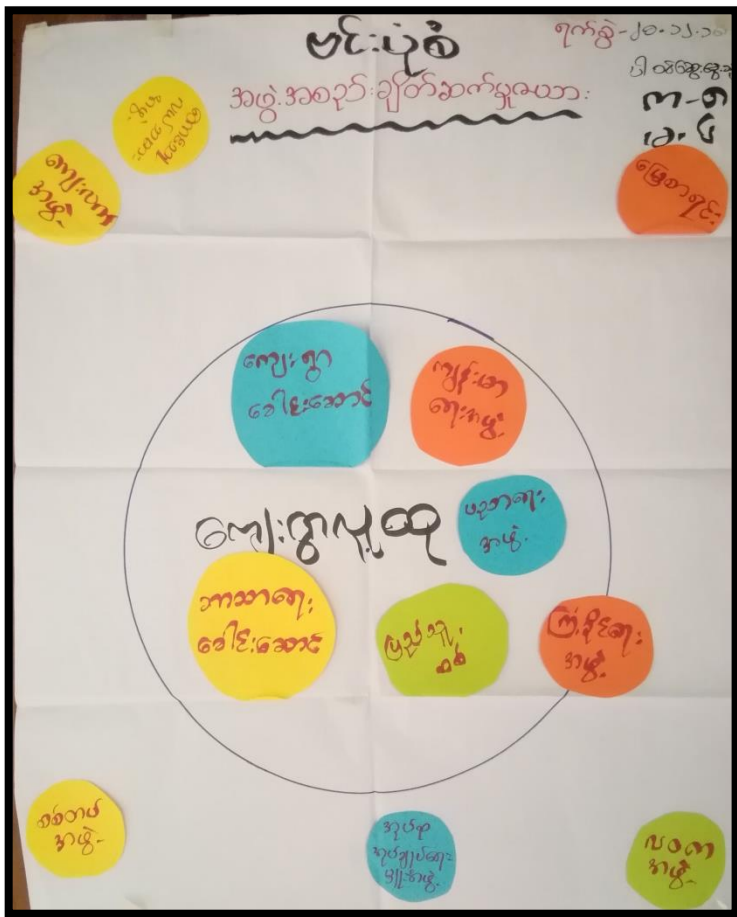 ဗင်းပုံစံ
ရက်စွဲ-၂၀.၁၂.၁၈
အဖွဲ့အစည်းချိတ်ဆက်မှုဇယား
က-ခ
ကျေးလက်
အဖွဲ့
မြေစာရင်း
ကျေးရွာ
ခေါင်းဆောင်
ကျန်းမာ
ရေးအဖွဲ့
ကျေးရွာလူထု
ပညာရေး
အဖွဲ့
ဘာသာရေး
ခေါင်းဆောင်
ပြည်သူ့
စစ်
ကြံ့ခိုင်ရေး
အဖွဲ့
စစ်တပ်
အဖွဲ့
အုပ်စု
အုပ်ချုပ်ရေး
မှူးအဖွဲ့
လဝက
အဖွဲ့